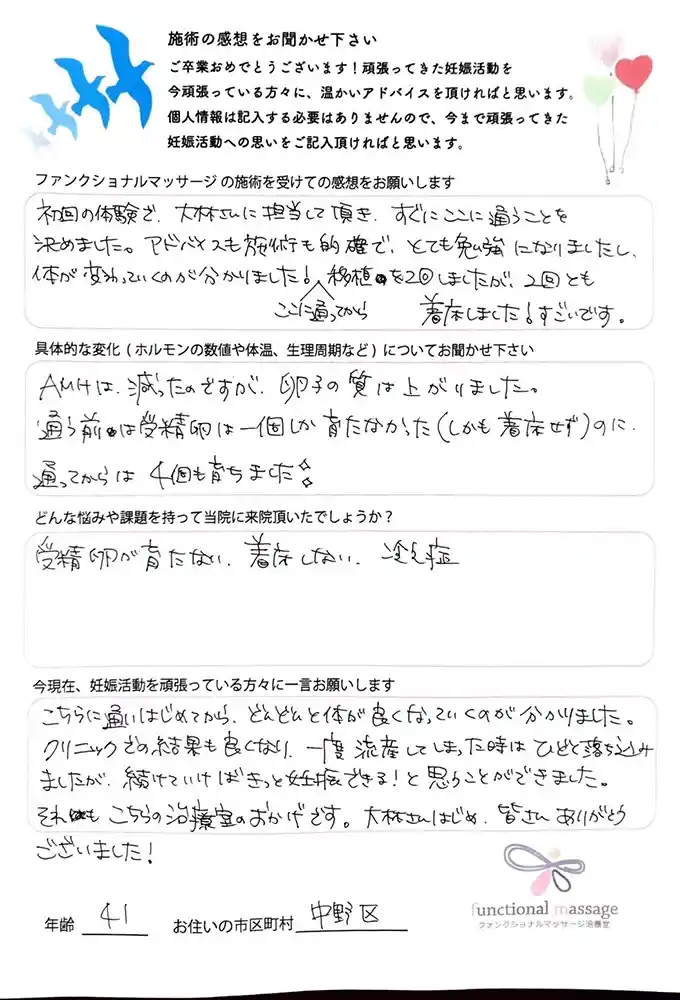 施術の感想をお聞かせ下さい
ご卒業おめでとうございます！頑張ってきた妊娠活動を
今頑張っている方々に、温かいアドバイスを頂ければと思います。
個人情報は記入する必要はありませんので、今まで頑張ってきた
妊娠活動への思いをご記入頂ければと思います。
ファンクショナルマッサージの施術を受けての感想をお願いします
初回の体験で、大林さんに担当して頂き、すぐにここに通うことを
決めました。アドバイスも施術も的確で、とても勉強になりましたし、
体が変わっていくのが分かりました！移植を2回しましたが、2回とも
ここに通ってから 着床しました！すごいです。
具体的な変化（ホルモンの数値や体温、生理周期など）についてお聞かせ下さい
AMHは、減ったのですが、卵子の質は上がりました。
通う前は受精卵は一個しか育たなかった（しかも着床せず）のに、
通ってからは4個も育ちました
どんな悩みや課題を持って当院に来院頂いたでしょうか？
受精卵が育たない、着床しない、冷え症
今現在、妊娠活動を頑張っている方々に一言お願いします
こちらに通いはじめてから、どんどんと体が良くなっていくのが分かりました。
クリニックでの結果も良くなり、一度流産してしまった時はひどく落ち込み
ましたが、続けていけばきっと妊娠できる！と思うことができました。
それもこちらの治療室のおかげです。大林さんはじめ、皆さんありがとう
ございました！
functional massage
ファンクショナルマッサージ治療室
年齢 41 お住いの市区町村 中野区